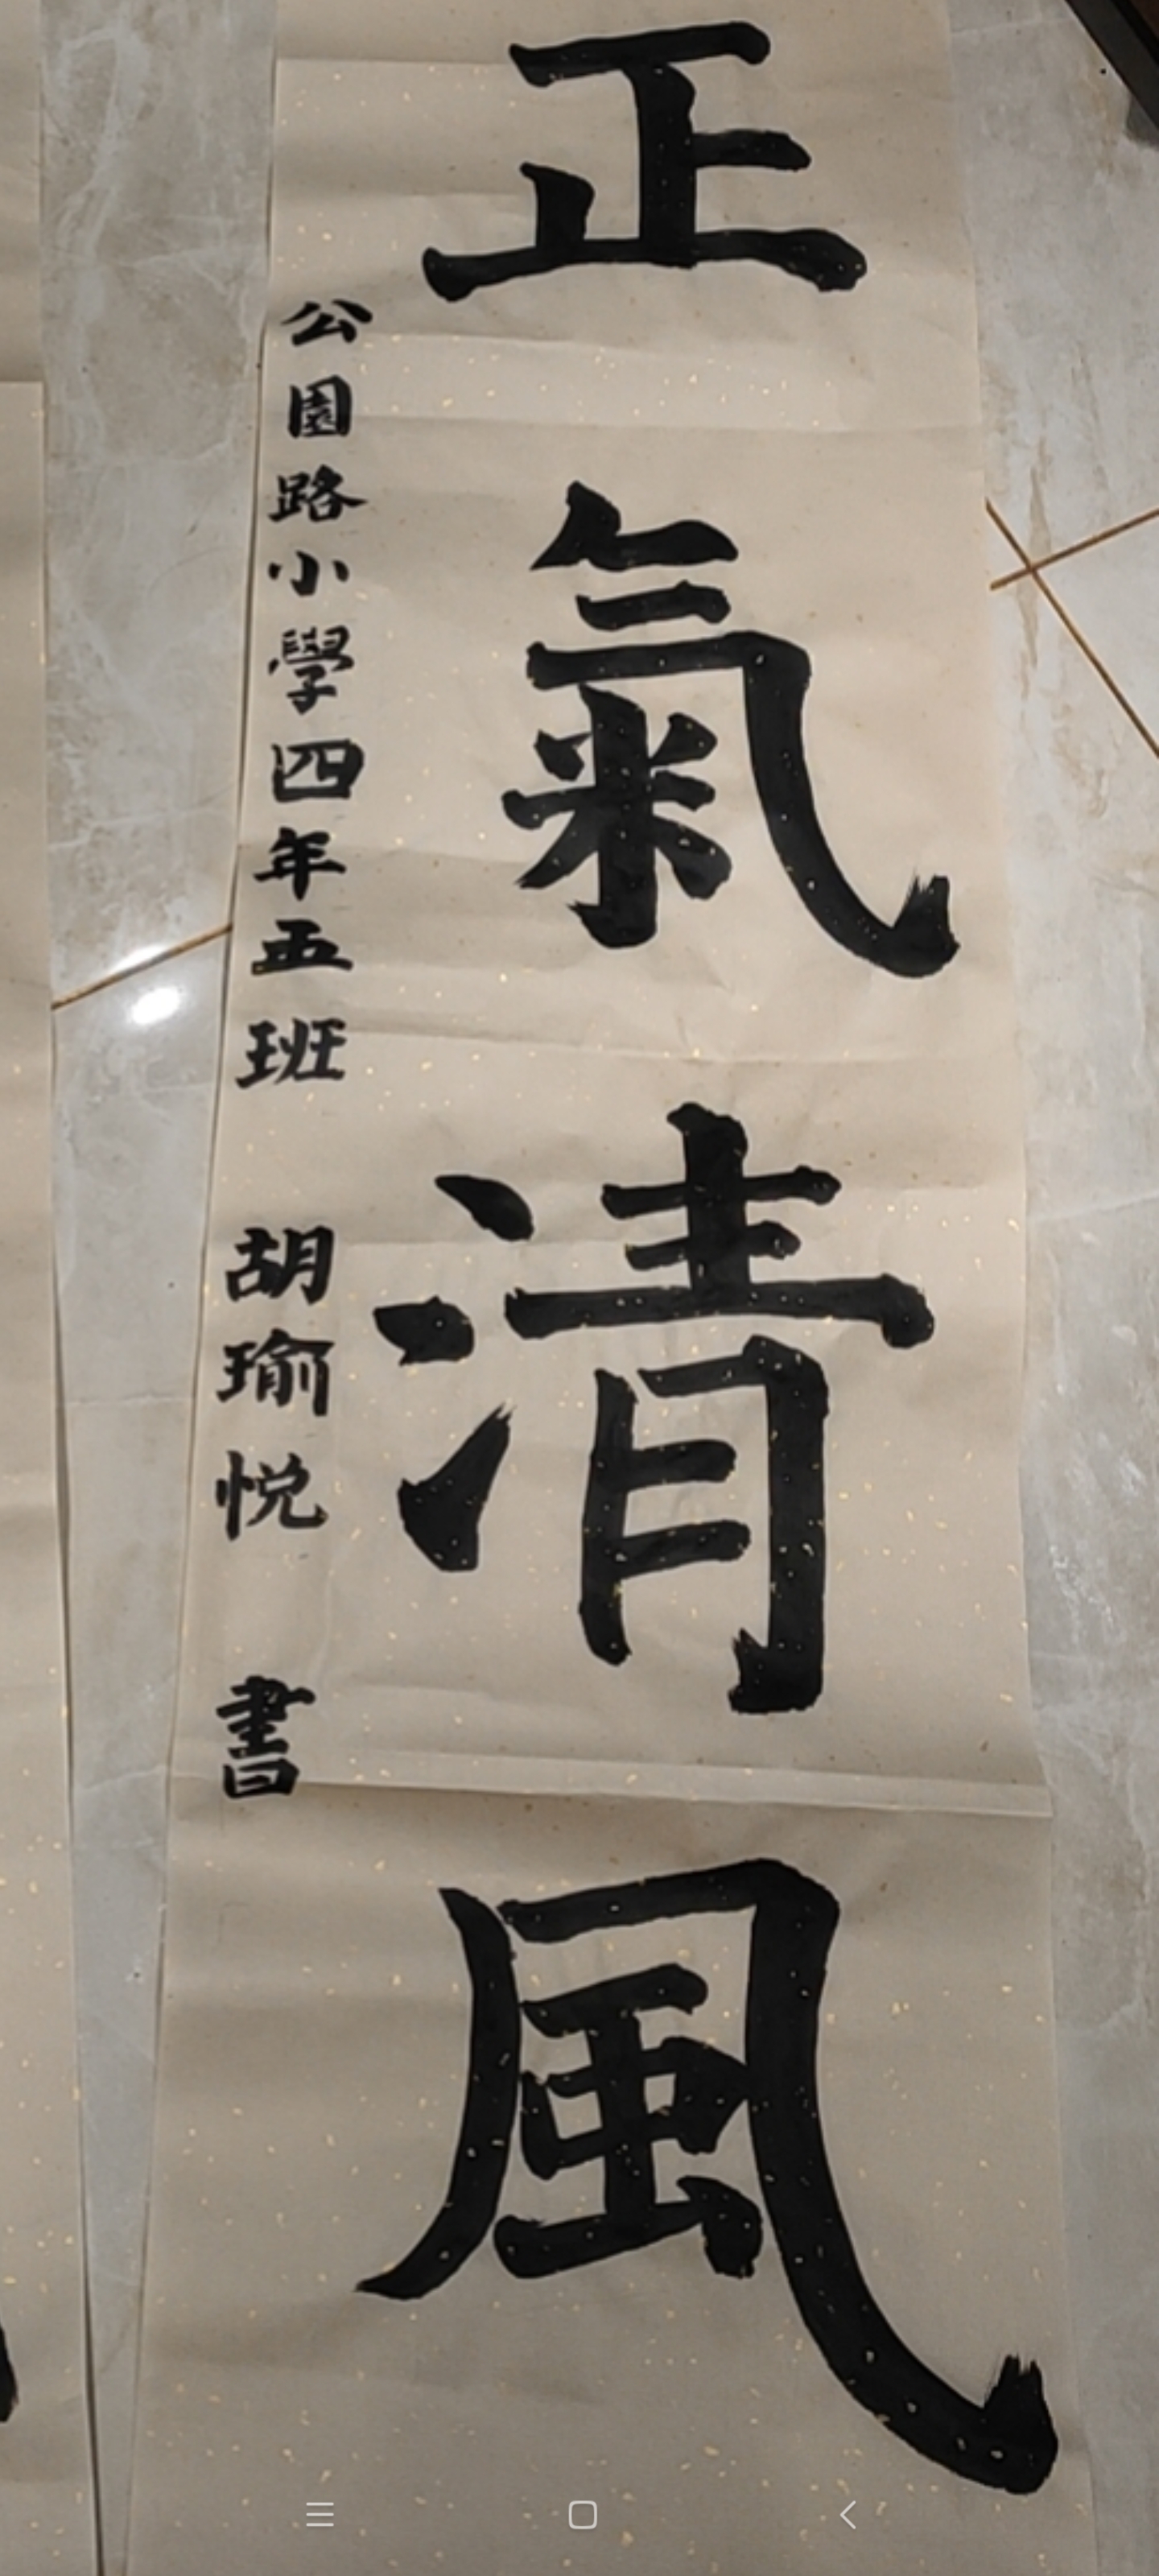 正氣清風
公園路小學四年五班 胡瑜悦 書